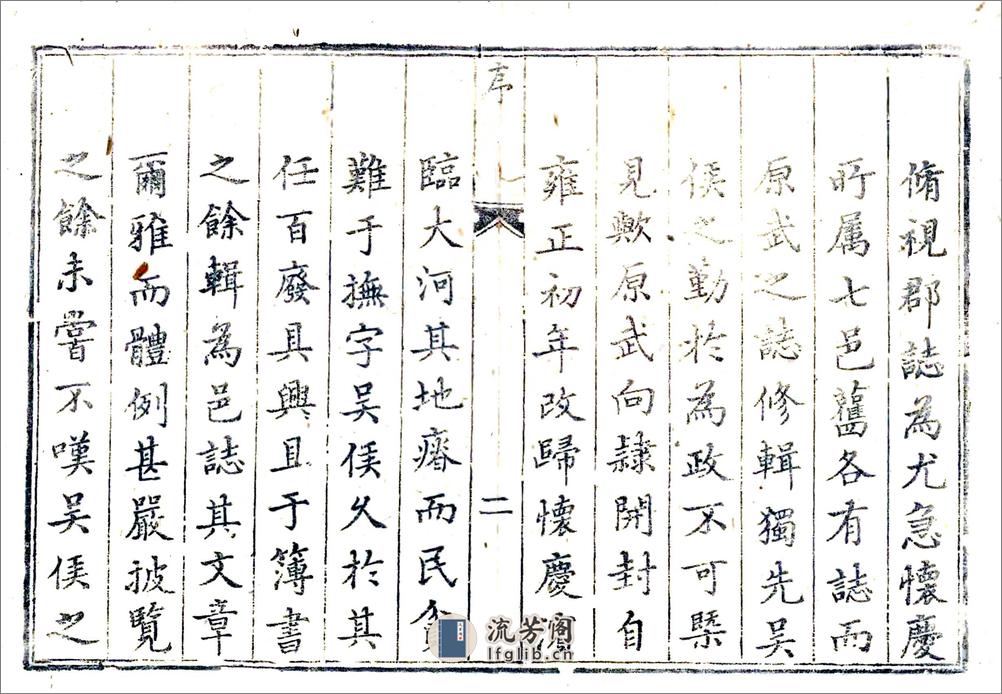 脩視郡誌為尤急懷慶
所属七邑舊各有誌而
原武之誌修輯獨先吳
侯之勤於為政不可槩
見歟原武向隸開封自
雍正初年改歸懷慶
序
二
臨大河其地瘠而民
難于撫字吳侯久於其
任百廢具興且于簿書
之餘輯為邑誌其文章
爾雅而體例甚嚴披覽
之餘未嘗不嘆吳侯之
流芳阁
lfglib.cn